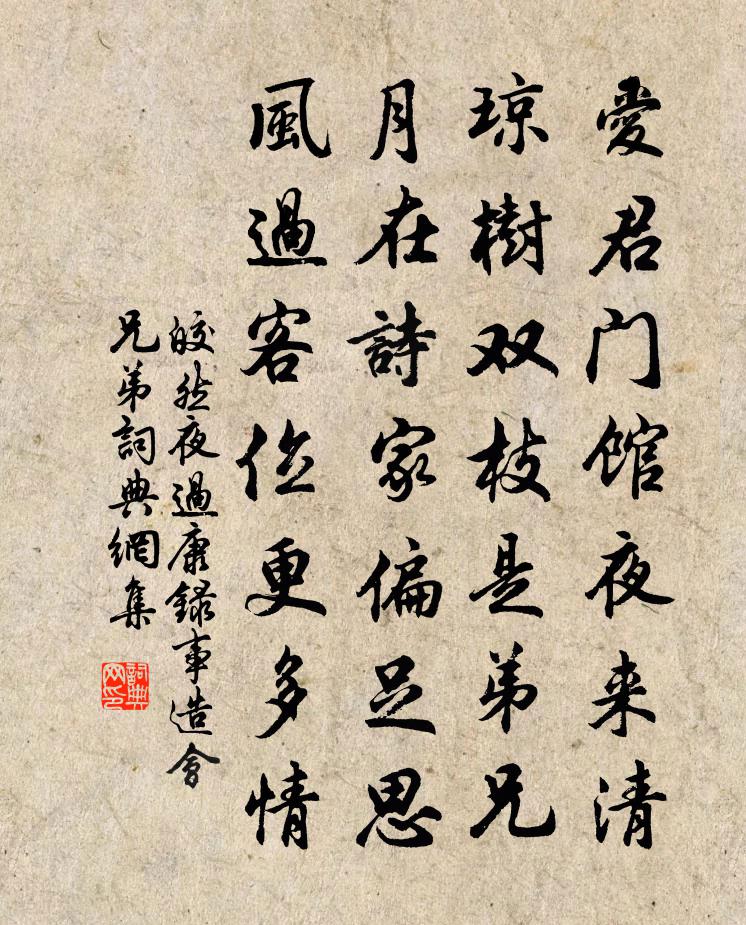 愛君门館夜来清
琼樹双枝是弟兄
月在詩家偏足思
風過客位更多情
皎然夜過康録事造會
兄弟詞典網集
詞典网印